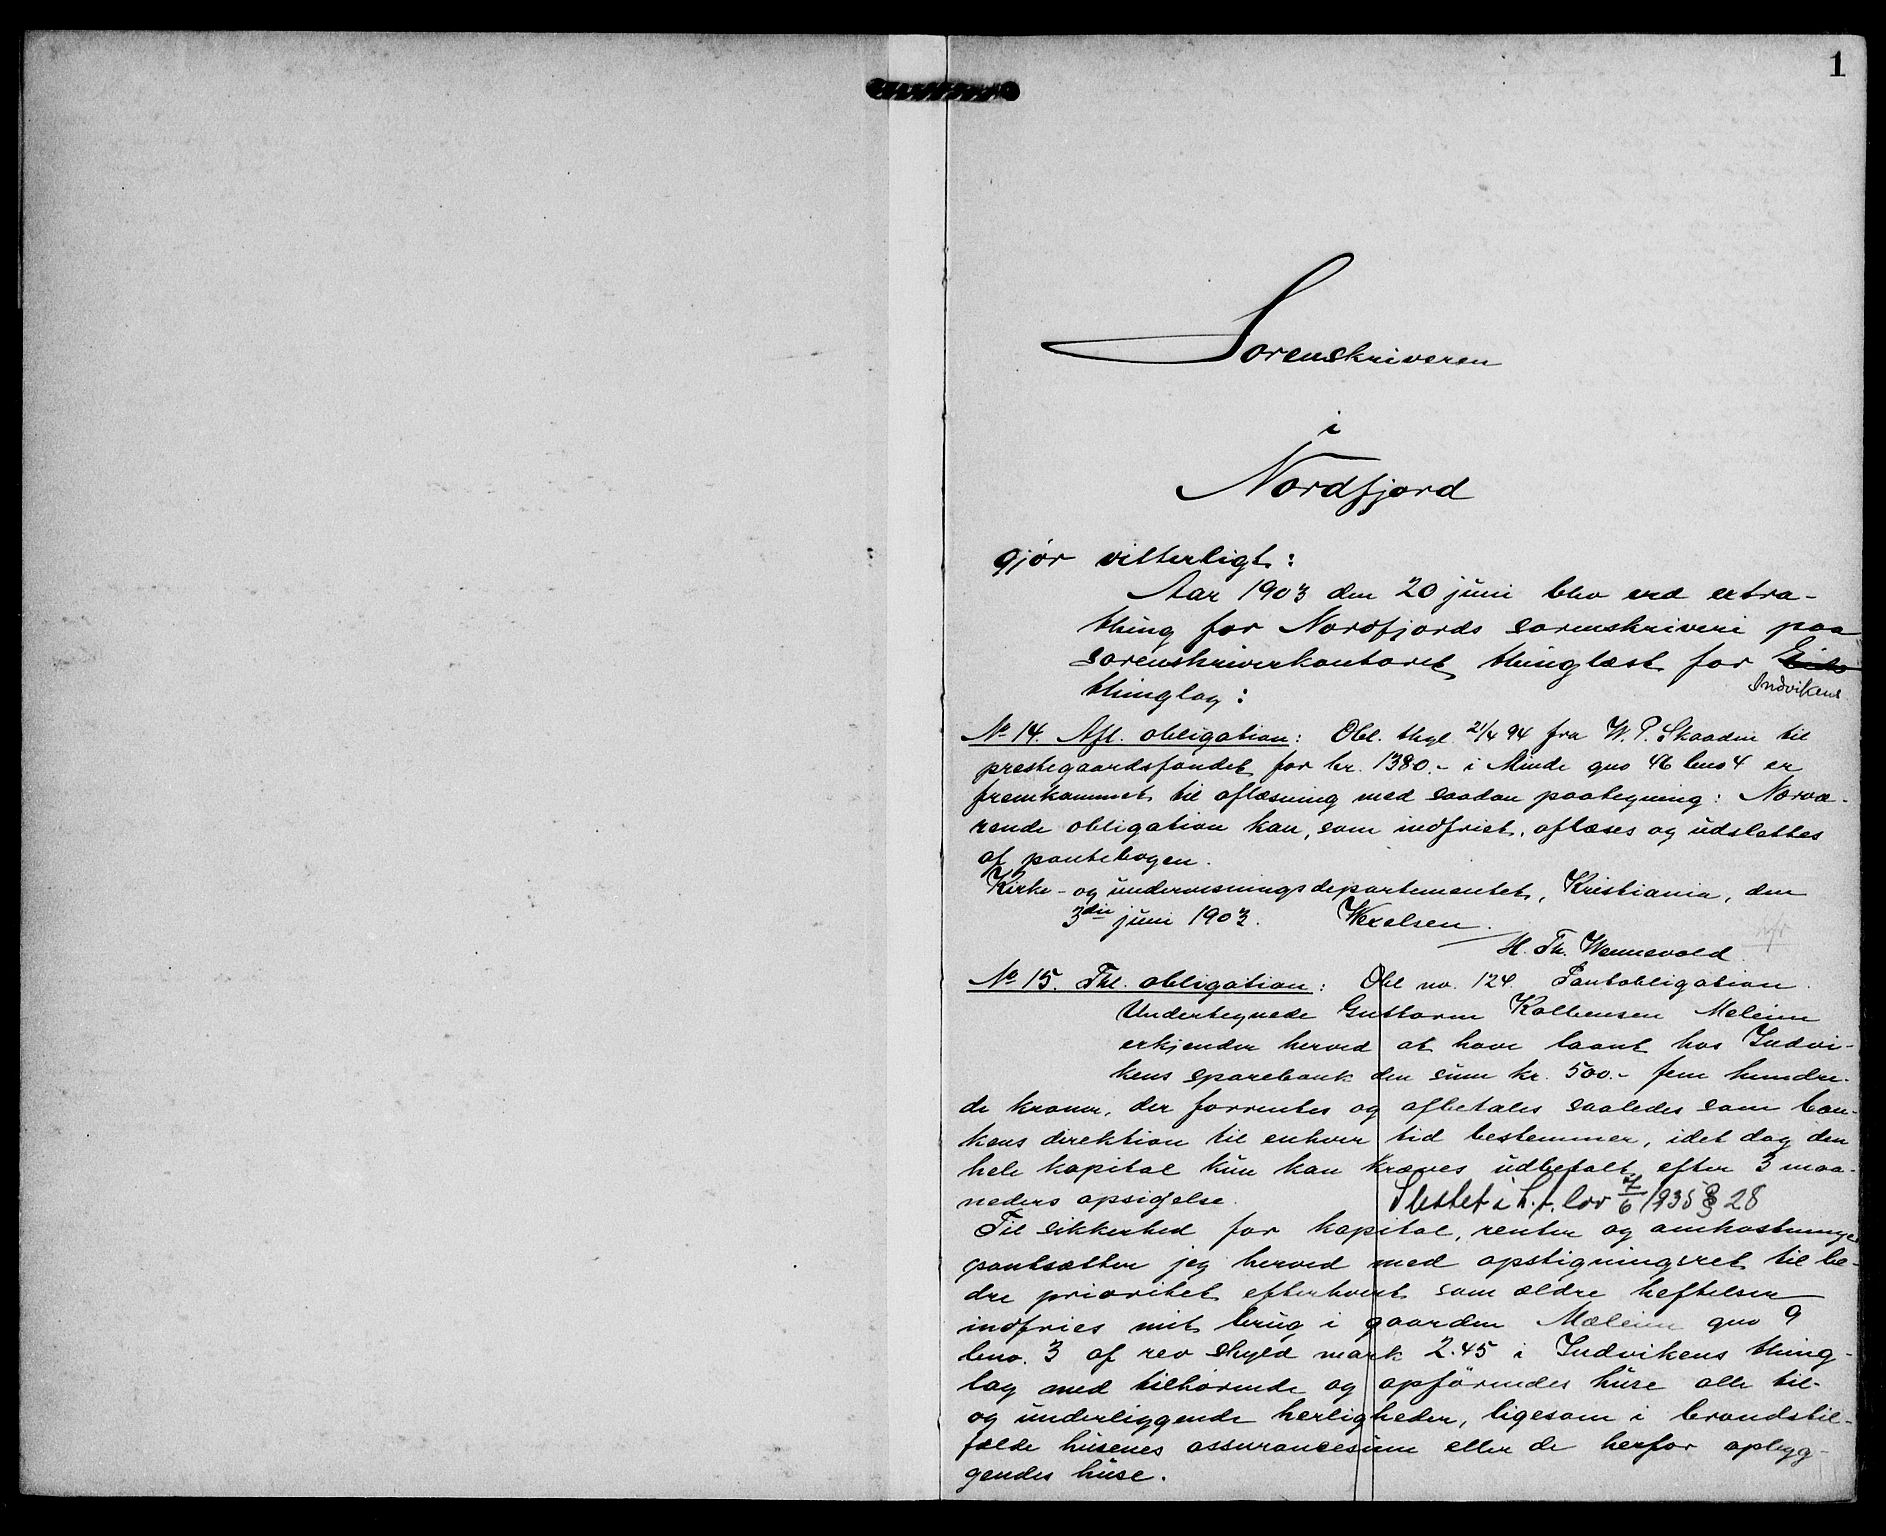 1
Sorenskriveren
i
Nordfjord
gjør vitterligt:
Aar 1903 den 20 juni blev ved extra-
thing for Nordfjords sorenskriveri paa
sorenskriverkontoret thinglæst for
Indvikens
thinglag:
No 14. Afl. obligation: Obl. thgl. 21/4 94 fra W. P. Skaaden til
prestegaardsfondet for kr. 1380.- i Minde gno 46 bno 4 er
fremkommet til aflæsning med saadan paategning: Nærvæ-
rende obligation kan, som indfriet, aflæses og udslettes
af pantebogen.
Kirke- og undervisningsdepartementet, Kristiania, den
3die juni 1903. Wexelsen.
H. Th. Wennevold
No 15. Thl. obligation: Obl no. 124. Pantobligation.
Undertegnede Guttorm Kolbensen Meleim
erkjender herved at have laant hos Indvi-
kens sparebank den sum kr. 500.- fem hundre-
de kroner, der forrentes og afbetales saaledes som ban-
kens direktion til enhver tid bestemmer, idet dog den
hele kapital kun kan kræves udbetalt efter 3 maa-
neders opsigelse.
Slettet i h.t. lov 7/6 1935 § 28
Til sikkerhed for kapital, renter og omkostninger
pantsætter jeg herved med opstigningsret til be-
dre prioritet efterhvert som ældre heftelser
indfries mit brug i gaarden Mæleim gno 9
bno. 3 af rev skyld mark 2.45 i Indvikens thing-
lag med tilhørende og opførendes huse alle til-
og underliggende herligheder, ligesom i brandstil-
fælde husenes assurancesum eller de herfor opbyg-
gendes huse.